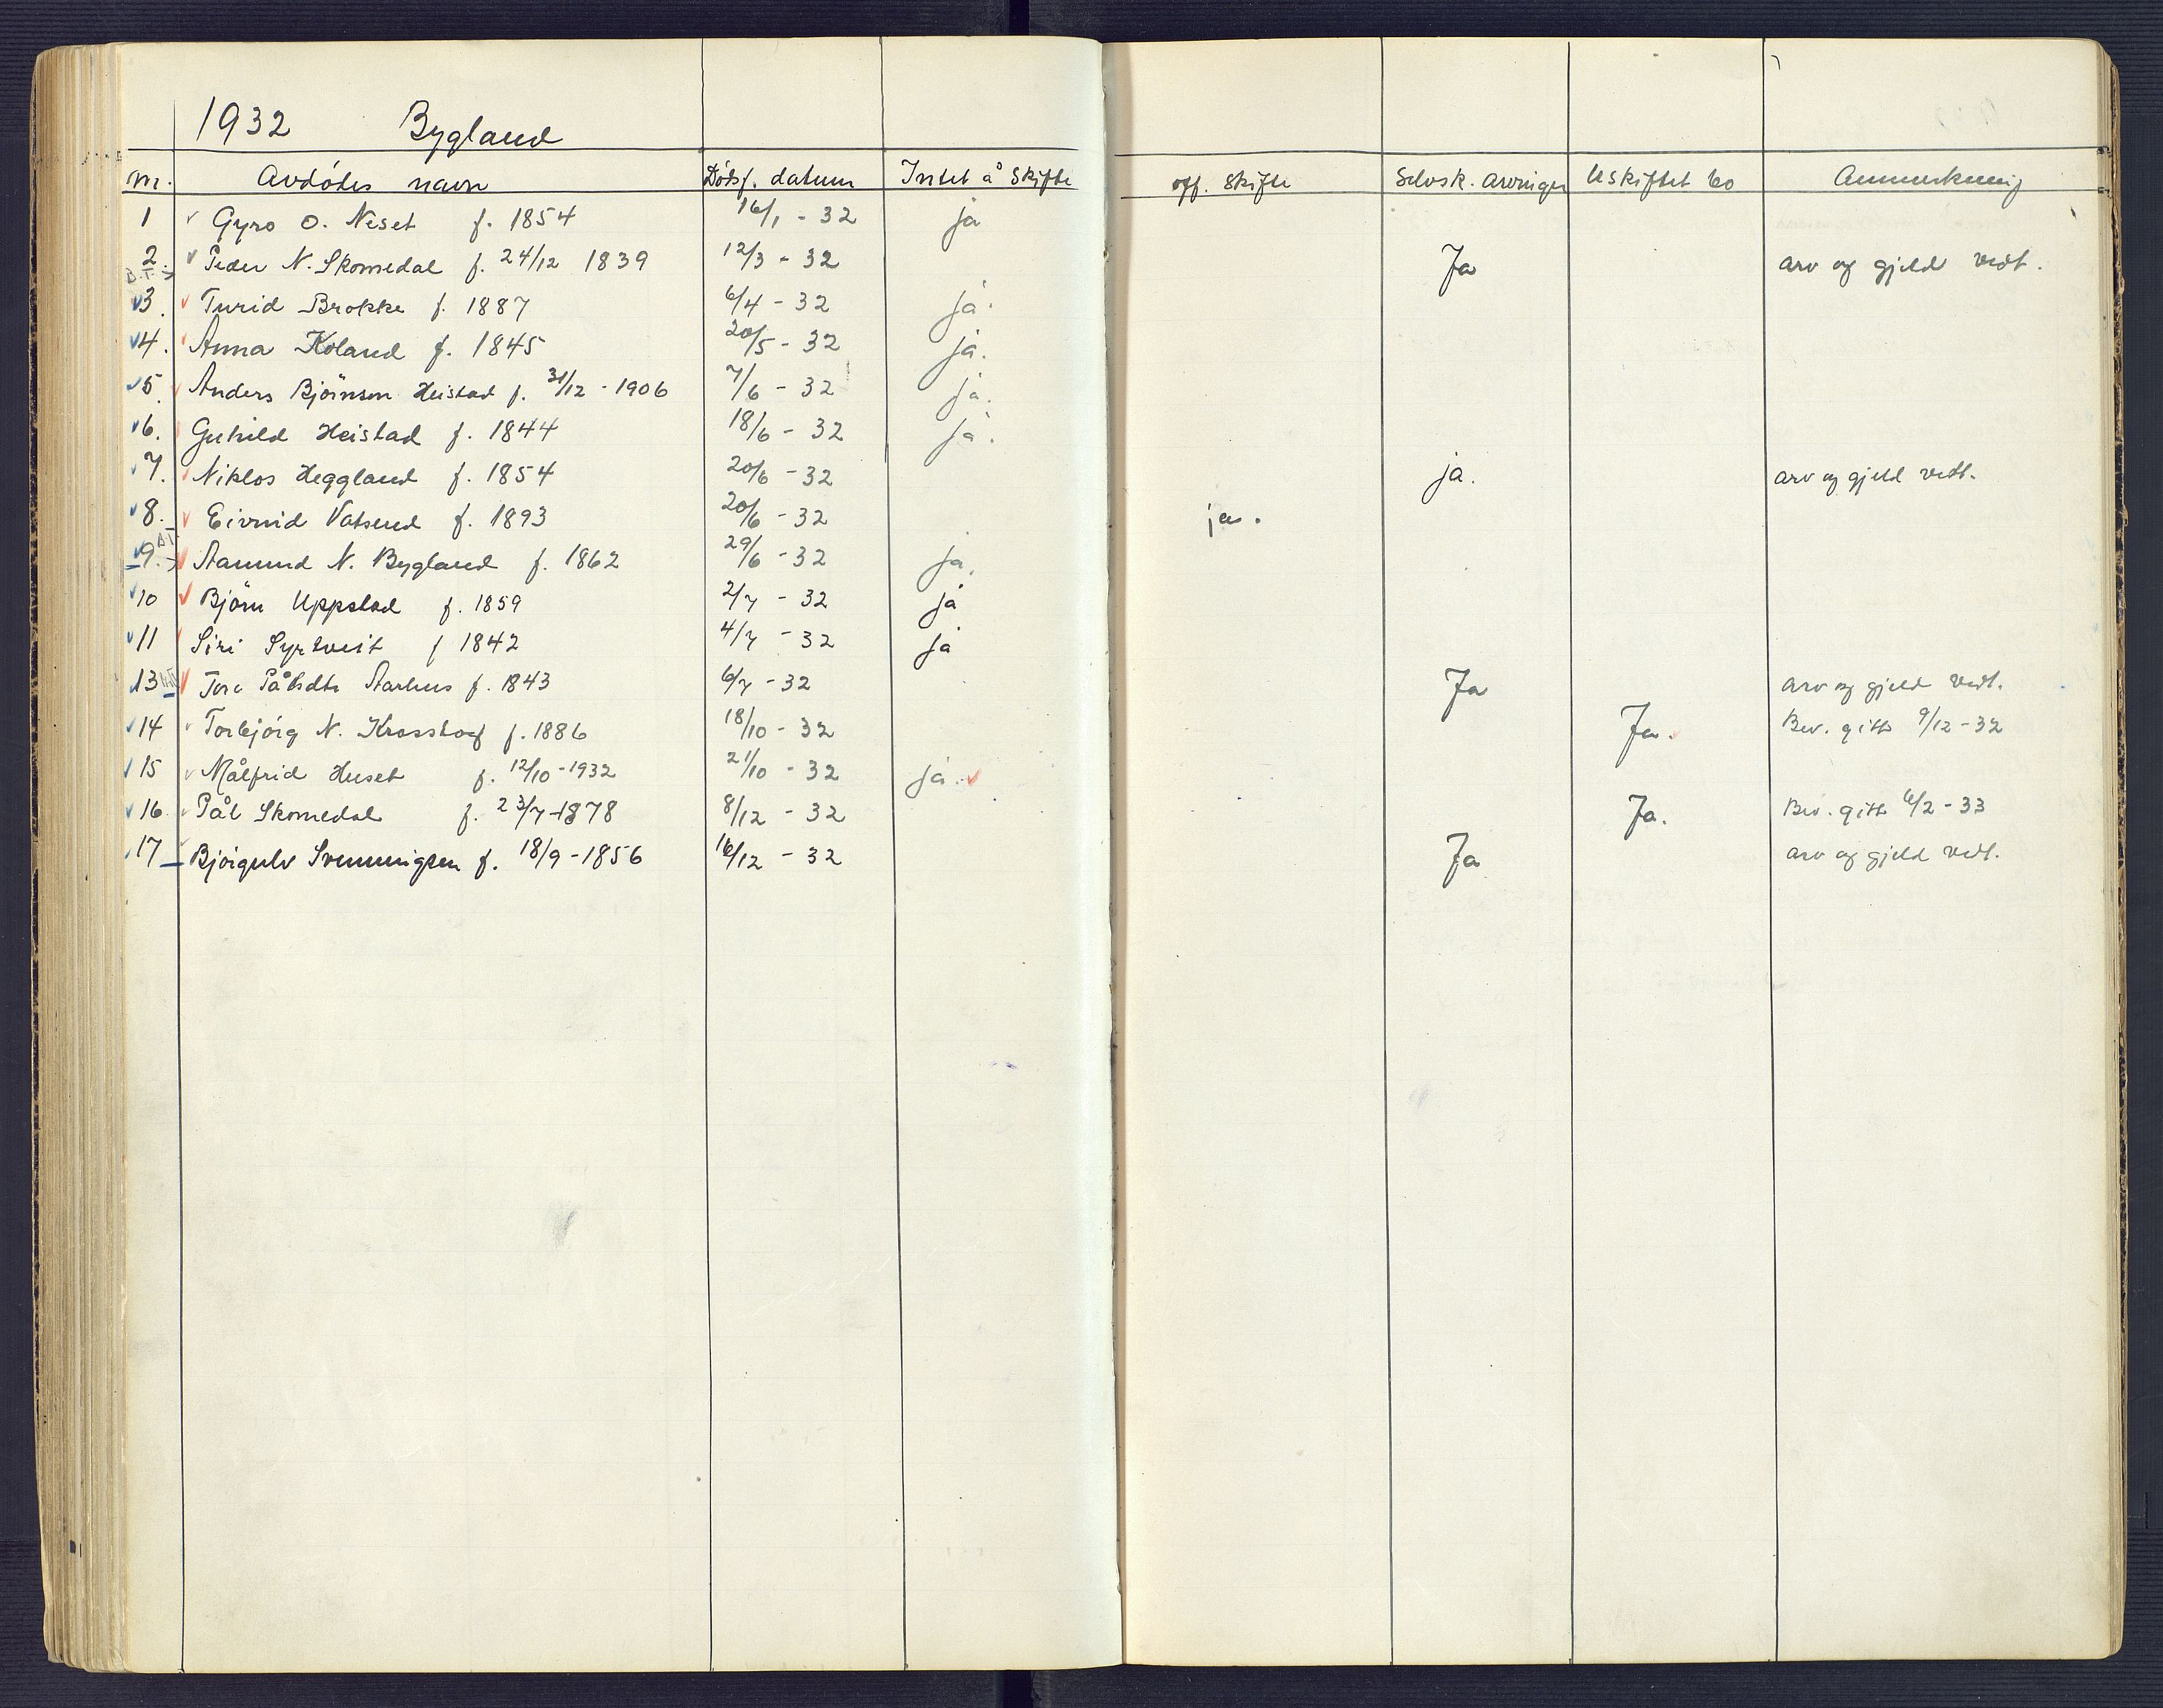 1932 Bygland
nr. Avdødes navn Dödsf. datum Intet å Skifte off. Skifte Selvsk. arvinger Uskiftet bo Anmerkning
1 Gyro O. Neset f. 1854 16/1 - 32 ja
2. Peder N. Skomedal f. 24/12 1839 12/3 - 32 Ja arv og gjeld vedt.
3. Turid Brokke f. 1887 6/4 - 32 ja.
4. Anna Koland f. 1845 20/5 - 32 ja.
5. Anders Björnson Heistad f. 31/12 - 1906 7/6 - 32 ja.
6. Guhild Heistad f. 1844 18/6 - 32 ja.
7. Niklos Heggland f. 1854 20/6 - 32 ja. arv og gjeld vedt.
8. Eivind Vatsend f. 1893 20/6 - 32 ja.
9. Aamund N. Bygland f. 1862 29/6 - 32 ja.
10 Björn Uppstad f. 1859 2/7 - 32 ja
11 Siri Syrtveit f 1842 4/7 - 32 ja
13 Tore Pålsdtr Aarhus f. 1843 6/7 - 32 Ja arv og gjeld vedt.
14 Torbjörg N. f. 1886 18/10 - 32 Ja. Bev. gitt 9/12 - 32
15 Målfrid Huset f. 12/10 - 1932 21/10 - 32 ja.
16. Pål Skomedal f. 23/7 - 1878 8/12 - 32 Ja. Bev. gitt 6/2 - 33
17 Björgulv Svenningsen f. 18/9 - 1856 16/12 - 32 Ja arv og gjeld vedt.